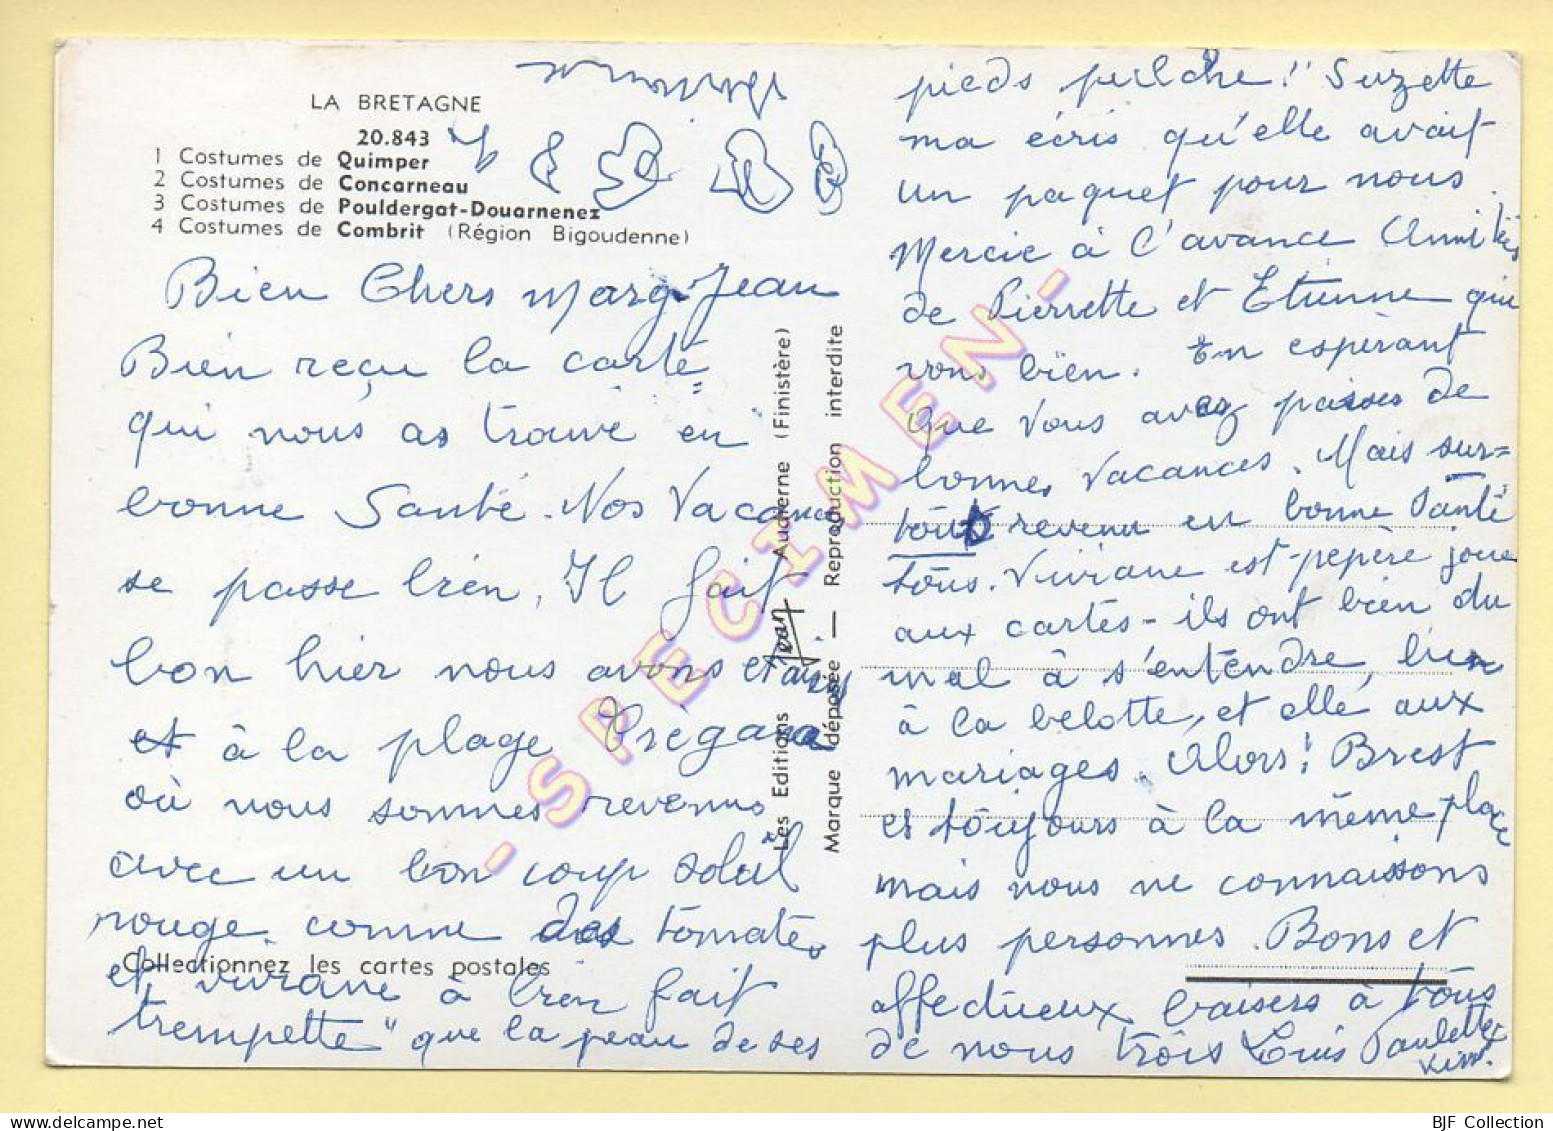 LA BRETAGNE
20.843
1 Costumes de Quimper
2 Costumes de Concarneau
3 Costumes de Pouldergat-Douarnenez
4 Costumes de Combrit (Région Bigoudenne)
Bien Chers Marg-Jean
Bien reçu la carte
qui nous as trouvé en
bonne Santé. Nos Vacances
se passe bien, Il fait
bon hier nous avons etais
et à la plage Tregana
où nous sommes revenus
avec un bon coup soleil
rouge comme des tomates
et viviane à bien fait
trempette" que la peau de ses
Collectionnez les cartes postales
Les Editions Jean Audierne (Finistère)
Marque déposée — Reproduction interdite
- SPECIMEN -
pieds peilche!! Suzette
ma écris qu'elle avait
un paquet pour nous.
Mercie à l'avance Amitiés
de Pierrette et Etienne qui
vons bien. En espèrant
que Vous avez passes de
bonnes Vacances. Mais sur=
tout revenu en bonne Santé
tous. Viviane est-pepère joue
aux cartes - ils ont bien du
mal à s'entendre, bien
à la belotte, et elle aux
mariages. Alors! Brest
es toujours à la même place
mais nous ne connaissons
plus personnes. Bons et
affectueux baisers à tous
de nous trois Louis Paulette